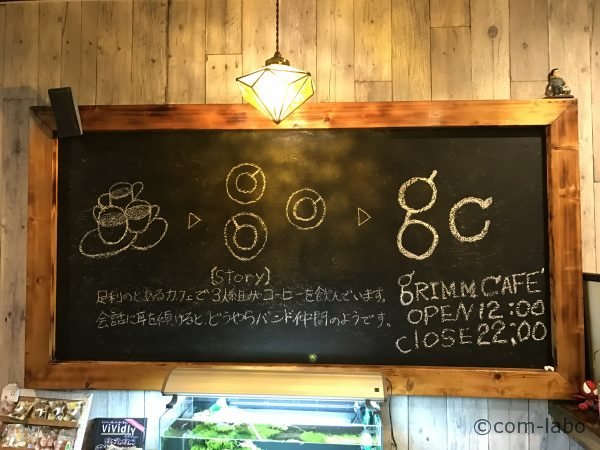 gc
{Story}
足利のとあるカフェで3人組がコーヒーを飲んでいます。
会話に耳を傾けると、どうやらバンド仲間のようです。
GRIMM CAFE'
OPEN 12:00
CLOSE 22:00
Vividly
©com-labo